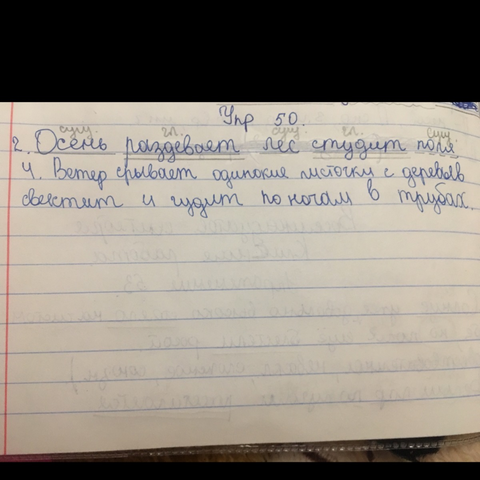 Упр 50.
сущ. гл. сущ. гл. сущ.
2. Осень раздевает лес студит поля
4. Ветер срывает одинокие листочки с деревьев
свистит и гудит по ночам в трубах.